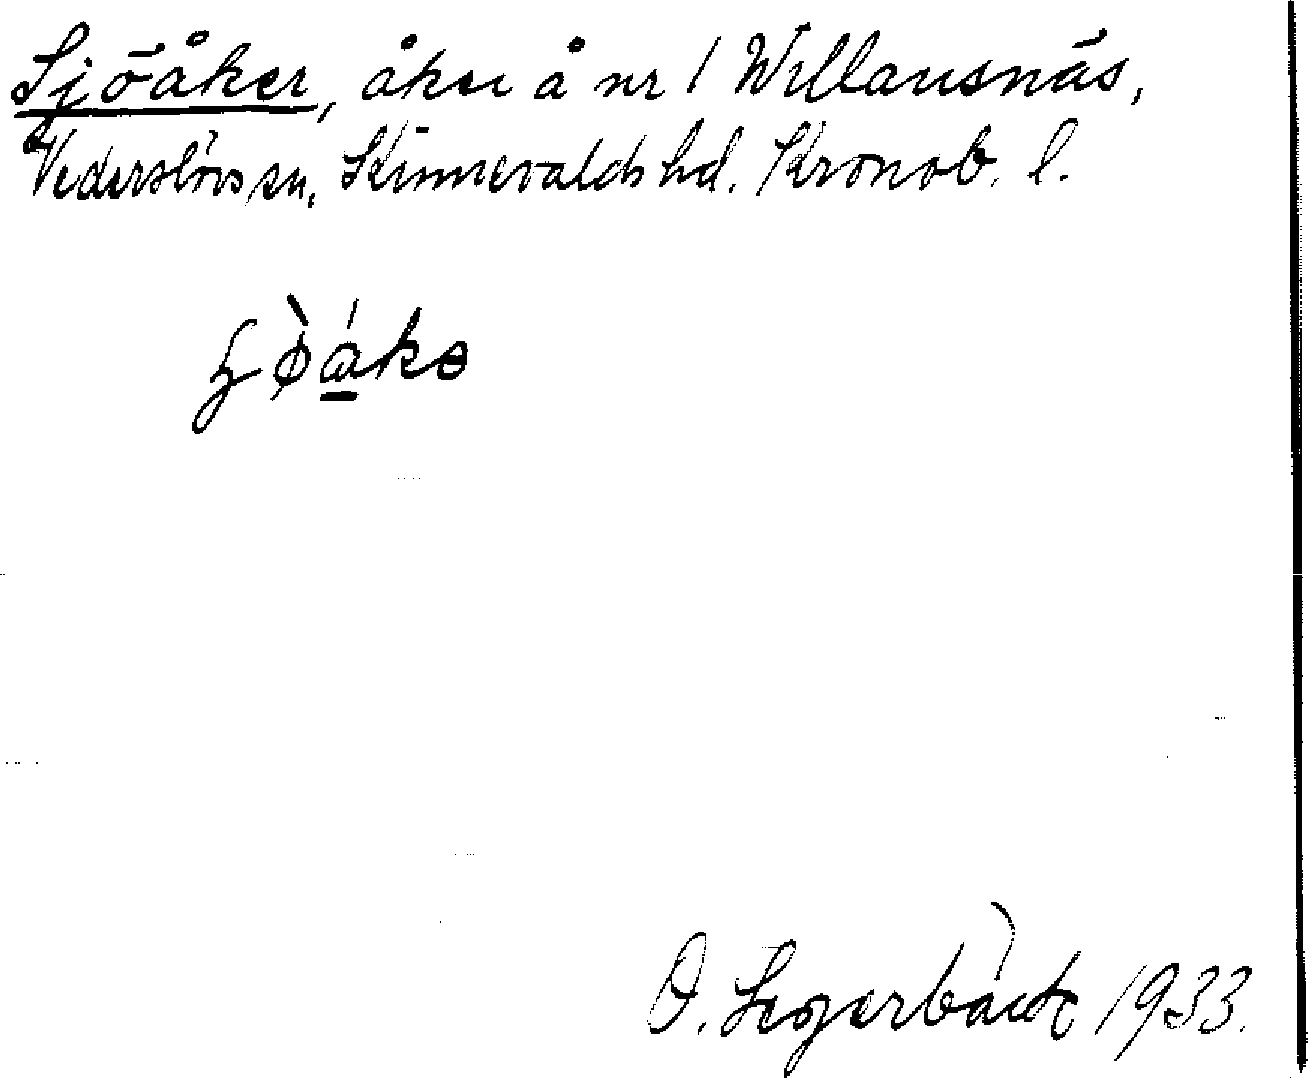 Sjöåker, åker å nr 1 Willansnäs,
Vederslövs sn, Kinnevalds hd. Kronob. l.
O. Segerbäck 1933.